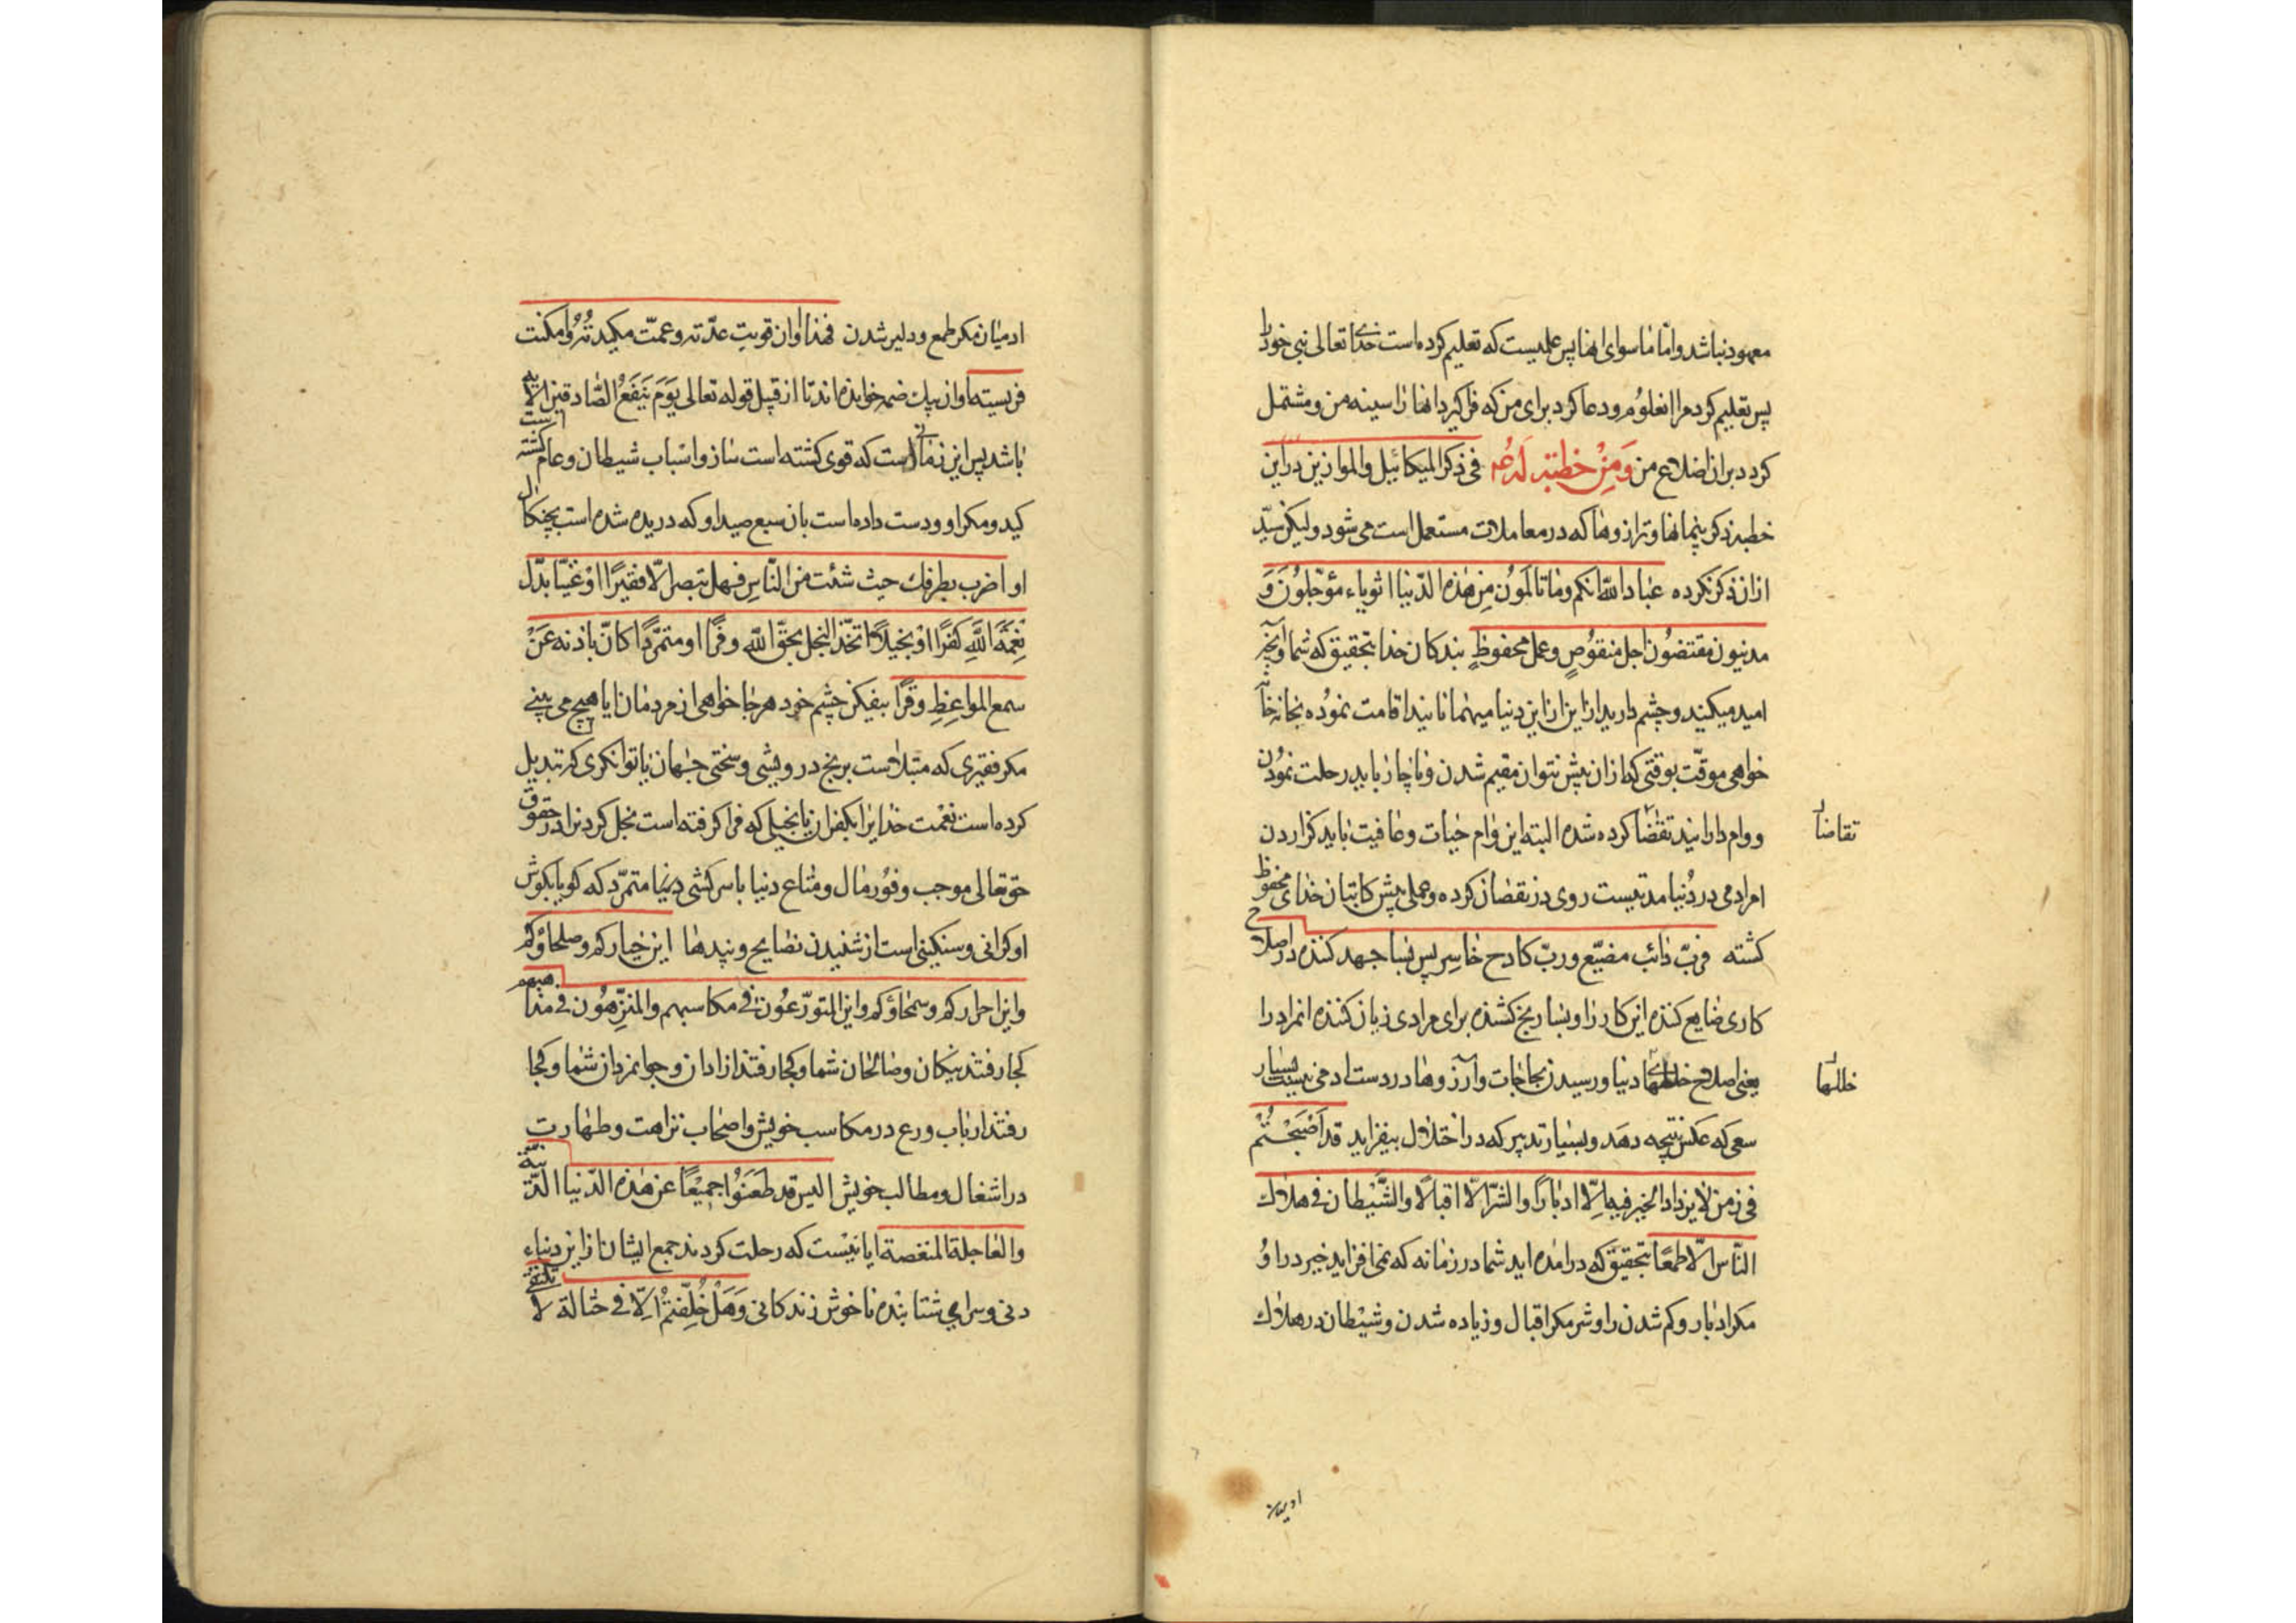 معهود نباشد و امّا ماسوای انها پس علمیست که تعلیم کرده است خدای تعالی نبی خود را
پس تعلیم کرد مرا انعلوم و دعا کرد برای من که فراکیرد انها را سینه من و مشتمل
کردد بران اضلاع من وَمِنْ خطبَتِه لَهُ ع فی ذکر المیکائیل والموازین در این
خطبه ذکر پیمانها و ترازوها که در معاملات مستعمل است می شود ولیکن سیّد
ازان ذکر نکرده عباد الله انکم وما تاملون مِن هٰذه الدّنیا اثویاء مؤجّلون وَ
مدینون مقتضُون اجل منقوُصٍ وعمل محفوظٍ بندکان خدا بتحقیق که شما و آنچه
امید میکنید و چشم دارید ازاین ازاین دنیا میهمانانید اقامت نموُده بخانه
خواهی موقّت بوقتی که ازان پیش نتوان مقیم شدن و ناچار باید رحلت نموُدن
و وام دارانید تقضٰا کرده شده البته این وٰام حیٰات و عٰافیت بٰاید کزاردن
تقاضٰا
امر ادمی در دُنیا مدتیست روی در نقصان کرده و عملی پیش کاتبان خدٰای محفوظ
کشته فربّ دٰائب مضیّع وربّ کادح خٰاسِر پس بسا جهد کننده در اصلاح
کاری ضٰایع کننده این کار رٰا و بسٰا رنج کشنده برای مرادی زیان کننده انمراد را
یعنی اصلاح خللهای دنیا و رسیدن بحاجٰات و آرزوها در دست ادمی نیست بسیار
خللها
سعی که عکس نتیجه دهَد و بسیٰار تدبیر که در اختلٰال بیفزاید قد اَصْبَحْتُمْ
فی زمن لا یزداد الخیر فیه الّا ادبٰارًا والشرّ الّا اقبالًا والشّیْطٰان فی هلاک
النّاس الّا طمعًا بتحقیق که درامده اید شما در زمانه که نمی افزاید خیر در او
مکر ادبٰار و کم شدن را و شر مکر اقبال و زیاده شدن و شیْطان در هلٰاک
ادمیان
ادمیٰان مکر طمع و دلیر شدن فهذا اوٰان قویتِ عدّته و عمّت مکیدتُهُ وامکنت
فریسته اوان بیک ضمه خوانده اند تا از قبیل قوله تعالی یَوْمَ یَنْفَعُ الصّادقین الآیه
باشد پس این زمانی است که قوی کشته است ساز و اسْباب شیطان و عام کشته است
کید و مکر او و دست داده است بان سبع صید او که دریده شده است بچنکال
او اضرب بطرفك حیث شئت من النّاسِ فهل تبصر الّا فقیرًا اوْ غنیّا بدّل
نِعْمَةَ اللَّهِ کُفرًا اوْ بخیلًا اتّخذ البخل بحقّ اللّه وفرًا او متمرّدًا کانّ باذنه عَنْ
سمع المواعِظِ وقرًا بیفیکن چشم خود هر جا خواهی از مردمان ایا هیچ می بینی
مکر فقیری که مبتلاست برنج درویشی و سختی جهان یٰا توانکری که تبدیل
کرده است نعْمت خدایرا بکفران یا بخیلی که فراکرفته است بخل کردنرا در حقوق
حق تعالی موجب وفوُر مٰال و متٰاع دنیا یا سرکشی متمرّد که کویا بکوش
او کرانی و سنکینی است از شنیدن نصایح و پندهٰا این خیٰارکم وصلحاؤکم
واین احرارکم وسمحاؤکم واین المتورّعوُن فی مکاسبهم والمتنزّهوُن فی مذاهبهم
کجا رفتند نیکان و صالحٰان شما و کجا رفتند ازادان و جوانمردان شمٰا و کجا
رفتند ارباب ورع در مکاسب خویش و اصحٰاب نزاهت و طهٰارت
در اشغال و مطالب خویش الیس قد ظَعَنوُا جمیْعًا عن هٰذه الدّنیا الدّنیّة
والعٰاجلة المنغصة ایا نیْست که رحلت کردند جمع ایشٰان ازاین دنیاء
دنی و سرای شتابنده ناخوش زندکانی وَهَلْ خُلِّفْتُمْ الّا فی حثالة لا تلتقی